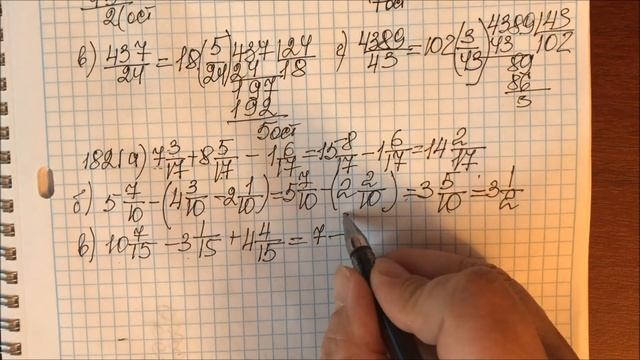 2(ост
7ост
в) 437/24 = 18(5/24) 437 | 24
24 18
197
192
5ост
г) 4389/43 = 102(3/43) 4389 | 43
43 102
89
86
3
182(а) 7 3/17 + 8 5/17 - 1 6/17 = 15 8/17 - 1 6/17 = 14 2/17
б) 5 7/10 - (4 3/10 - 2 1/10) = 5 7/10 - (2 2/10) = 3 5/10 = 3 1/2
в) 10 7/15 - 3 1/15 + 4 4/15 = 7